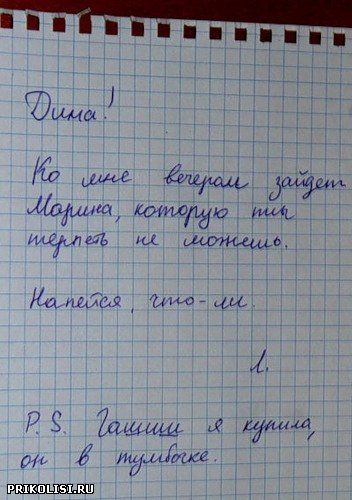 Дима!
Ко мне вечером зайдет
Марина, которую ты
терпеть не можешь.
Напейся, что-ли.
Л.
P.S. Гашиш я купила,
он в тумбочке.
PRIKOLISI.RU